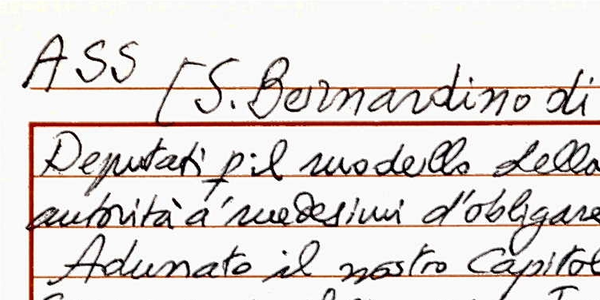 ASS [S. Bernardino di
Deputati p il modello della
autorità a' medesimi d'obligare
Adunato il nostro Capitol